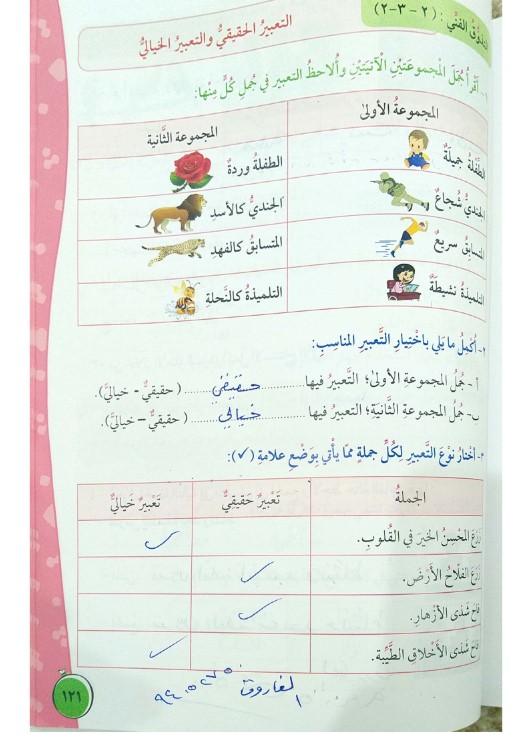 التذوق الفني: (٢ - ٣ - ٢)
التعبيرُ الحقيقيُّ والتعبيرُ الخياليُّ
١- أقرأُ جُمَلَ الْمجموعتَيْنِ الْآتيتَيْنِ وأُلاحظُ التعبير في جُملِ كُلٍّ مِنْها:
المجموعةُ الأولىٰ
المجموعة الثّانية
الطفلةُ جميلةٌ
الطفلةُ وردةٌ
الجنديُّ شجاعٌ
الجنديُّ كالأسدِ
المتسابقُ سريعٌ
المتسابقُ كالفهدِ
التلميذةُ نشيطةٌ
التلميذةُ كالنَّحلةِ
٢- أُكملُ ما يَلي باخْتِيارِ التَّعبيرِ المناسِبِ:
أ- جُملُ المجموعةِ الأولىٰ؛ التَّعبيرُ فيها حقيقي (حقيقيٌّ - خياليٌّ).
ب- جُملُ المجموعةِ الثَّانيَةِ؛ التعبيرُ فيها خيالي (حقيقيٌّ - خياليٌّ).
٣- أختارُ نَوْعَ التَّعبيرِ لِكُلِّ جملةٍ ممّا يأْتي بِوَضْعِ علامةِ (✓):
الجملةُ
تَعْبيرٌ حَقيقِيٌّ
تَعْبيرٌ خَياليٌّ
زَرَعَ المُحْسِنُ الخيرَ في القُلوبِ.
✓
زَرَعَ الفلَّاحُ الأرْضَ.
✓
فاحَ شَذى الأزْهارِ.
✓
فاحَ شَذى الأخْلاقِ الطَّيِّبة.
✓
الفاروق
١٢١